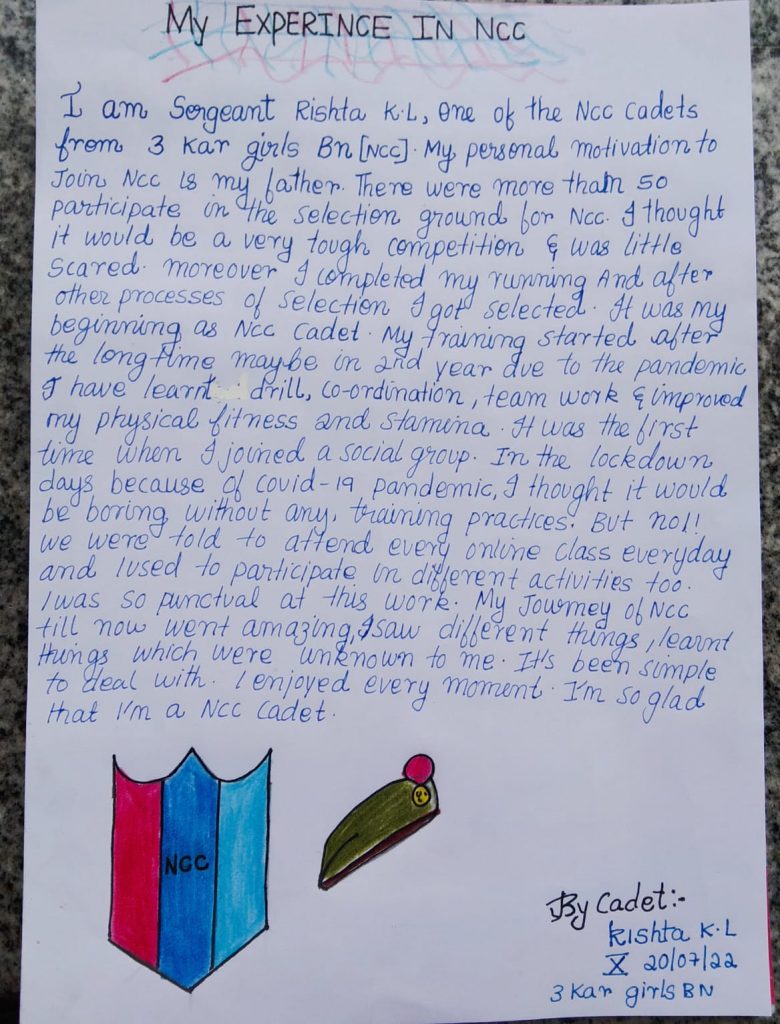 My EXPERINCE IN NCC
I am Sergeant Rishta K.L, One of the NCC Cadets
from 3 Kar girls Bn [NCC]. My personal motivation to
Join NCC is my father. There were more than 50
participate in the selection ground for NCC. I thought
it would be a very tough competition & was little
Scared. moreover I completed my running And after
other processes of selection I got selected. It was my
beginning as NCC Cadet. My training started after
the long time maybe in 2nd year due to the pandemic
I have learnt drill, co-ordination, team work & improved
my physical fitness and stamina. It was the first
time when I joined a social group. In the lockdown
days because of covid-19 pandemic, I thought it would
be boring without any, training practices. But no!!
we were told to attend every online class everyday
and I used to participate in different activities too.
I was so punctual at this work. My Journey of NCC
till now went amazing, I saw different things, learnt
things which were unknown to me. It's been simple
to deal with. I enjoyed every moment. I'm so glad
that I'm a NCC Cadet.
NCC
By Cadet:-
Rishta K.L
X 20/07/22
3 Kar girls BN